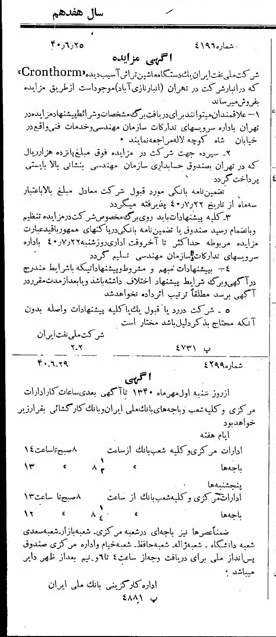 سال هفدهم
شماره ۴۱۹۶ ۴۰ر۶ر۲۵
آگهی مزایده
شرکت ملی نفت ایران یک دستگاه ماشین تراش آسیب دیده «Cronthorm»
که در انبار شرکت در تهران (انبار نازی آباد) موجود است از طریق مزایده
بفروش میرساند
۱– علاقمندان میتوانند برای دریافت برگ مشخصات و شرائط پیشنهاد مزایده در
تهران باداره سرویسهای تدارکات سازمان مهندسی و خدمات فنی واقع در
خیابان شاه کوچه لاله مراجعه نمایند
۲– سپرده جهت شرکت در مزایده فوق مبلغ پانزده هزار ریال
که در تهران بصندوق حسابداری سازمان مهندسی بنشانی بالا بایستی
پرداخت گردد
تضمین نامه بانکی مورد قبول شرکت معادل مبلغ بالا با اعتبار
سه ماه از تاریخ ۴۰ر۷ر۲۲ پذیرفته میگردد
۳– کلیه پیشنهادات باید روی برگ مخصوص شرکت در مزایده تنظیم
و بانضمام رسید صندوق یا تضمین نامه بانکی در پاکتهای ممهور باقید عبارت
مزایده مربوطه حداکثر تا آخر وقت اداری روز شنبه ۴۰ر۷ر۲۲ باداره
سرویسهای تدارکات سازمان مهندسی تسلیم گردد
۴– به پیشنهادات مبهم و مشروط و پیشنهاداتیکه با شرایط مندرج
در آگهی و برگ شرایط پیشنهاد اختلاف داشته باشد و یا بعد از مدت مقرر در
آگهی برسد مطلقاً ترتیب اثر داده نخواهد شد
۵ – شرکت در رد یا قبول یک یا کلیه پیشنهادات واصله بدون
آنکه محتاج بذکر دلیل باشد مختار است
شرکت ملی نفت ایران
پ ۴۷۳۱ ۲–۲
شماره ۴۲۹۹ ۴۰ر۶ر۲۹
آگهی
از روز شنبه اول مهرماه ۱۳۴۰ تا آگهی بعدی ساعات کار ادارات
مرکزی و کلیه شعب و باجه های بانک ملی ایران و بانک کارگشائی بقرار زیر
خواهد بود
ایام هفته
ادارات مرکزی و کلیه شعب بانک از ساعت ۸ صبح تا ساعت ۱۴
باجه ها » ۸ ۱/۲ » ۱۳
پنجشنبه ها
ادارات مرکزی و کلیه شعب بانک از ساعت ۸ صبح تا ساعت ۱۳
باجه ها » ۸ » ۱۲
ضمناً عصرها نیز باجه ای در شعبه مرکزی– شعبه بازار– شعبه سعدی
شعبه دانشگاه – شعبه ژاله– شعبه حافظ– شعبه خیام و اداره مرکزی صندوق
پس انداز ملی برای دریافت وجه از ساعت ۴ تا ۶ و نیم بعد از ظهر دایر
میباشد
اداره کارگزینی بانک ملی ایران
پ ۴۸۸۱